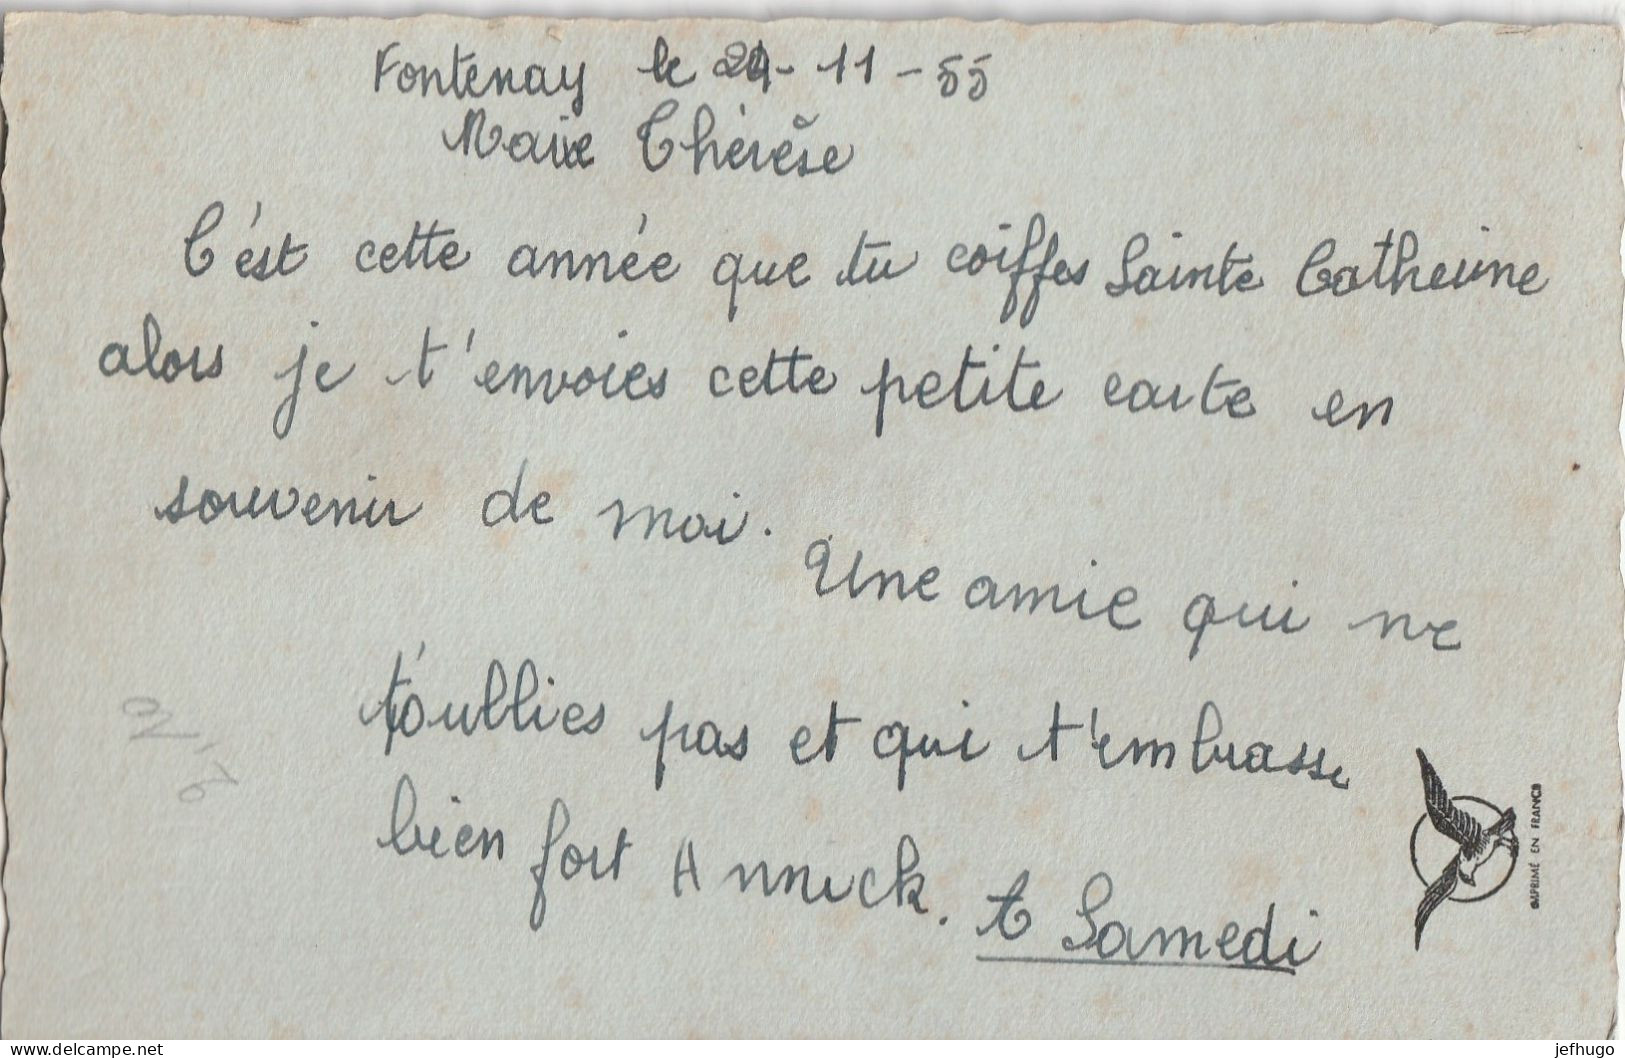 Fontenay le 24-11-55
Marie Thérèse
C'est cette année que tu coiffes Sainte Catherine
alors je t'envoies cette petite carte en
souvenir de moi.
Une amie qui ne
t'oublies pas et qui t'embrasse
bien fort Annick. A Samedi
IMPRIMÉ EN FRANCE
delcampe.net
jefhugo